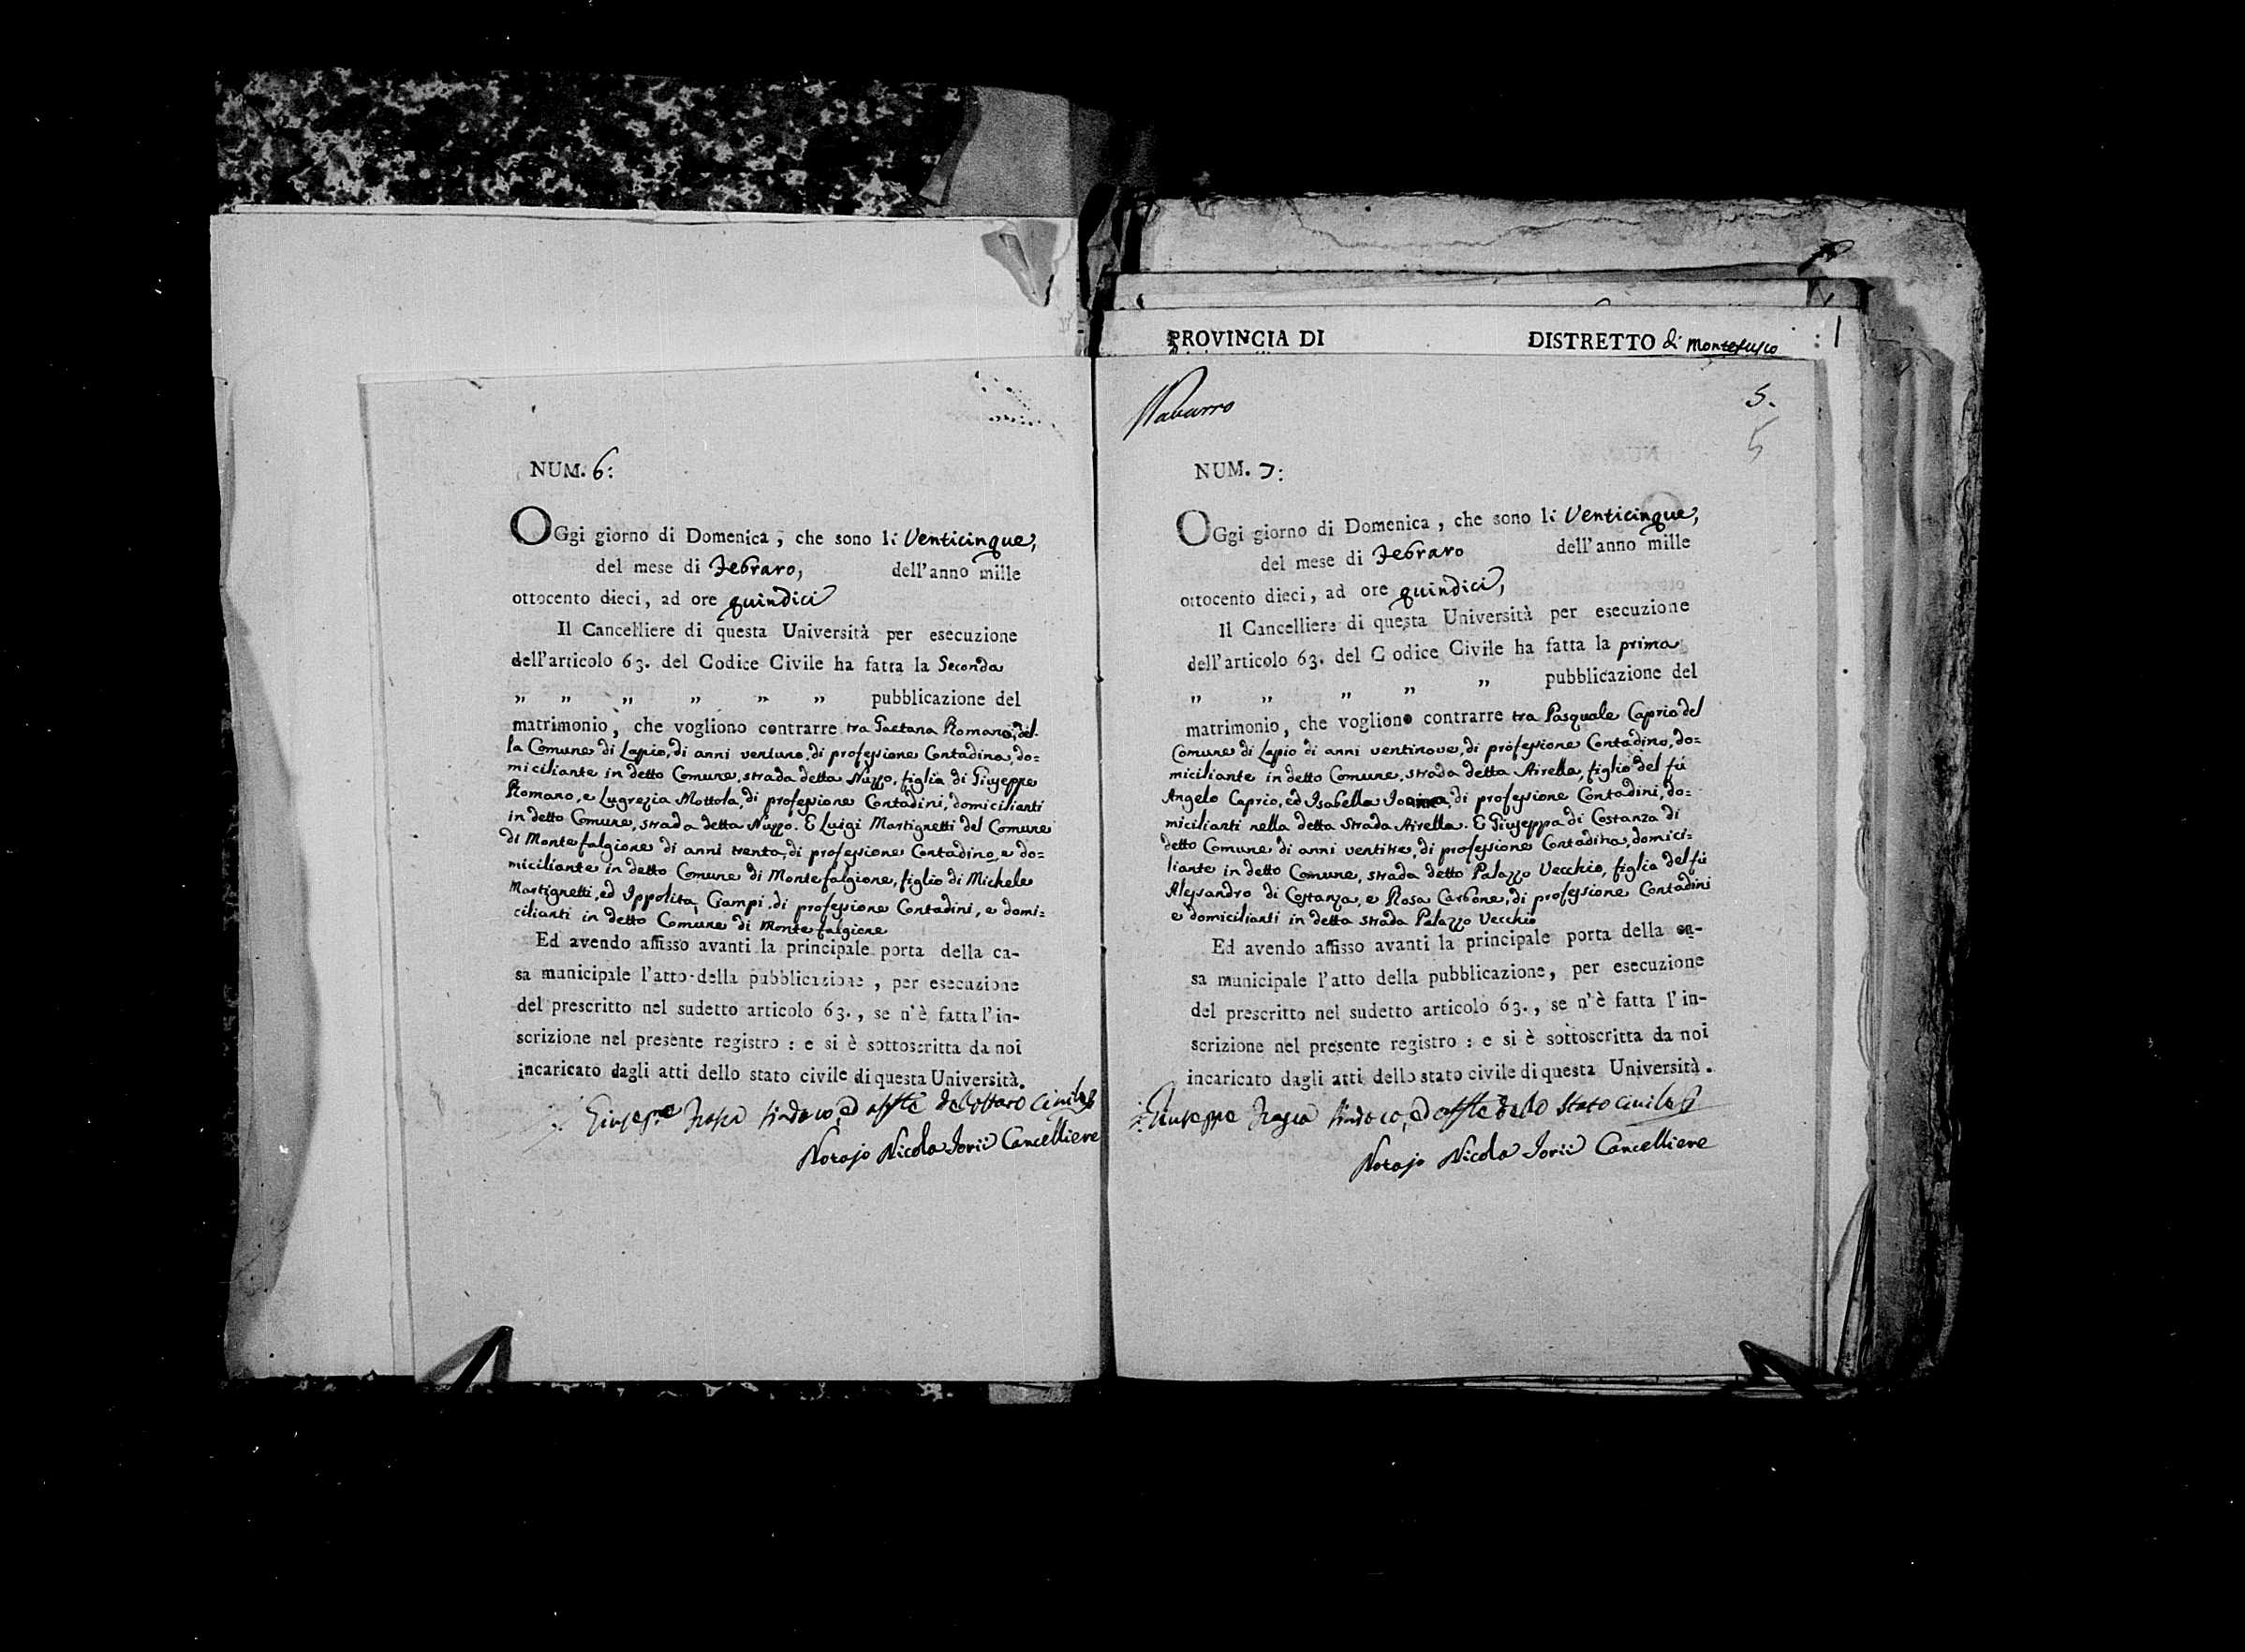 NUM. 6:
OGgi giorno di Domenica, che sono li Venticinque,
del mese di Febraro, dell'anno mille
ottocento dieci, ad ore quindici
Il Cancelliere di questa Università per esecuzione
dell'articolo 63. del Codice Civile ha fatta la Seconda
„ „ „ „ „ „ pubblicazione del
matrimonio, che vogliono contrarre tra Gaetana Romano, del-
la Comune di Lapio, di anni ventuno, di professione Contadina, do=
miciliante in detto Comune, strada detta Nuzzo, figlia di Giuseppe
Romano, e Lugrezia Mottola, di professione Contadini, domicilianti
in detto Comune, strada detta Nuzzo. E Luigi Martignetti del Comune
di Montefalgione di anni trenta, di professione Contadino, e do=
miciliante in detto Comune di Montefalgione, figlio di Michele
Martignetti, ed Ippolita Ciampi, di professione Contadini, e domi=
cilianti in detto Comune di Montefalgione
Ed avendo affisso avanti la principale porta della ca-
sa municipale l'atto della pubblicazione, per esecuzione
del prescritto nel sudetto articolo 63., se n'è fatta l'in-
scrizione nel presente registro : e si è sottoscritta da noi
incaricato dagli atti dello stato civile di questa Università.
Giuseppe sindaco, ed dello stato civile
Notajo Nicola Iorii Cancelliere
PROVINCIA DI DISTRETTO di Montefusco 1
Navarro 5.
5
NUM. 7:
OGgi giorno di Domenica, che sono li Venticinque,
del mese di Febraro dell'anno mille
ottocento dieci, ad ore quindici,
Il Cancelliere di questa Università per esecuzione
dell'articolo 63. del Codice Civile ha fatta la prima
„ „ „ „ „ pubblicazione del
matrimonio, che vogliono contrarre tra Pasquale Caprio del
Comune di Lapio di anni ventinove, di professione Contadino, do=
miciliante in detto Comune, strada detta Airella, figlio del fù
Angelo Caprio, ed Isabella di professione Contadini, do=
micilianti nella detta Strada Airella. E Giuseppa di Costanza di
detto Comune di anni ventitre, di professione Contadina, domici=
liante in detto Comune, strada detto Palazzo Vecchio, figlia del fù
Alessandro di Costanza, e Rosa Carbone, di professione Contadini
e domicilianti in detta strada Palazzo Vecchio
Ed avendo affisso avanti la principale porta della ca-
sa municipale l'atto della pubblicazione, per esecuzione
del prescritto nel sudetto articolo 63., se n'è fatta l'in-
scrizione nel presente registro : e si è sottoscritta da noi
incaricato dagli atti dello stato civile di questa Università.
Giuseppe sindaco, ed dello stato civile
Notajo Nicola Iorii Cancelliere